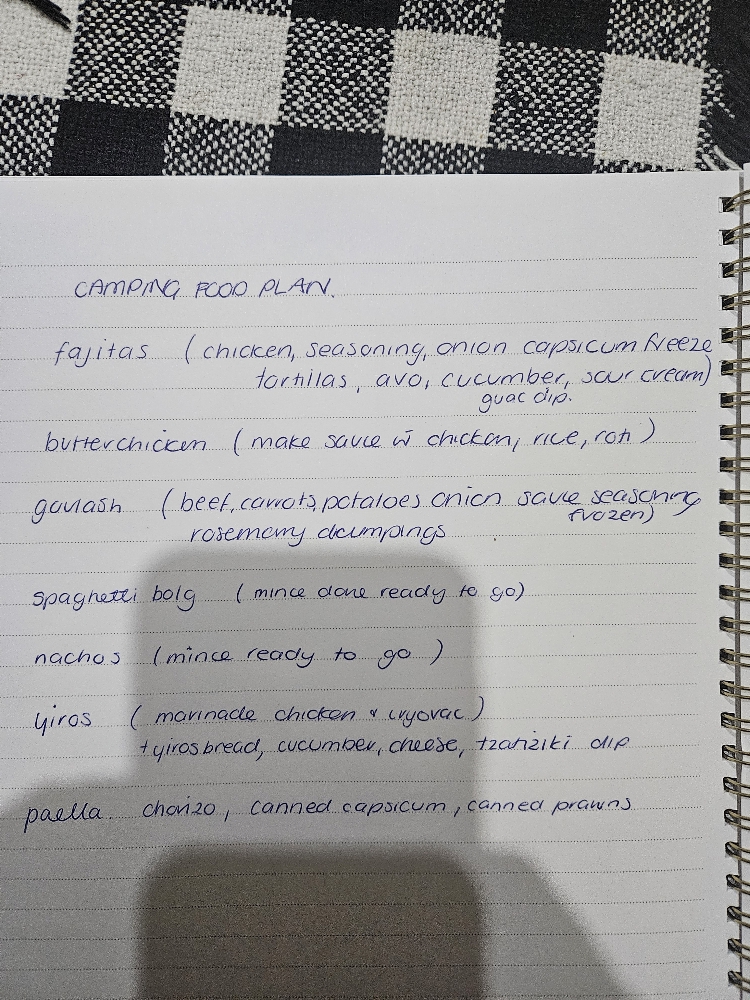 CAMPING FOOD PLAN.
fajitas (chicken, seasoning, onion capsicum freeze
tortillas, avo, cucumber, sour cream)
guac dip.
butterchicken (make sauce w̄ chicken, rice, roti)
goulash (beef, carrots, potatoes onion sauce seasoning
frozen)
rosemary dumpings
spaghetti bolg (mince done ready to go)
nachos (mince ready to go)
yiros (marinade chicken & cryovac)
+ yirosbread, cucumber, cheese, tzatziki dip
paella. chorizo, canned capsicum, canned prawns